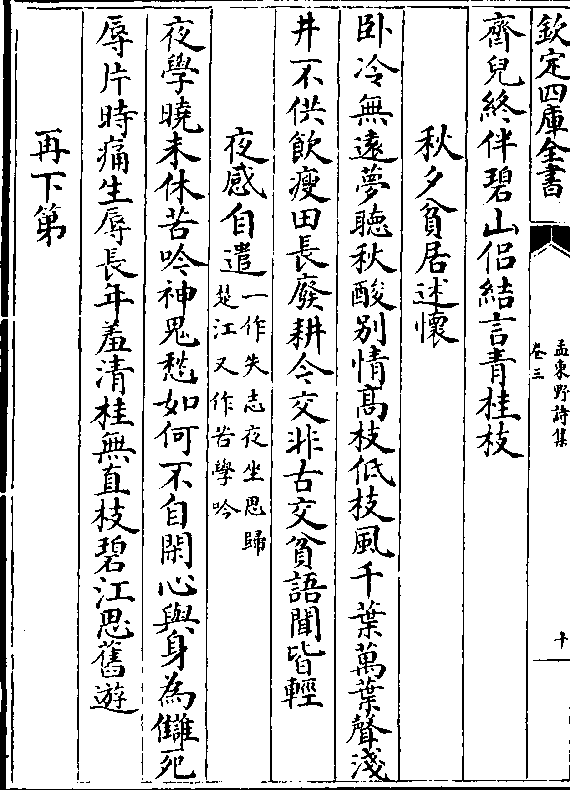 欽定四庫全書
孟東野詩集
卷三
十
齊兒終伴碧山侶結言青桂枝
秋夕貧居述懷
卧冷無遠夢聽秋酸别情高枝低枝風千葉萬葉聲淺
井不供飲瘦田長廢耕今交非古交貧語聞皆輕
夜感自遣一作失志夜坐思歸
楚江又作苦學吟
夜學曉未休苦吟神鬼愁如何不自閑心與身為讎死
辱片時痛生辱長年羞清桂無直枝碧江思舊遊
再下第